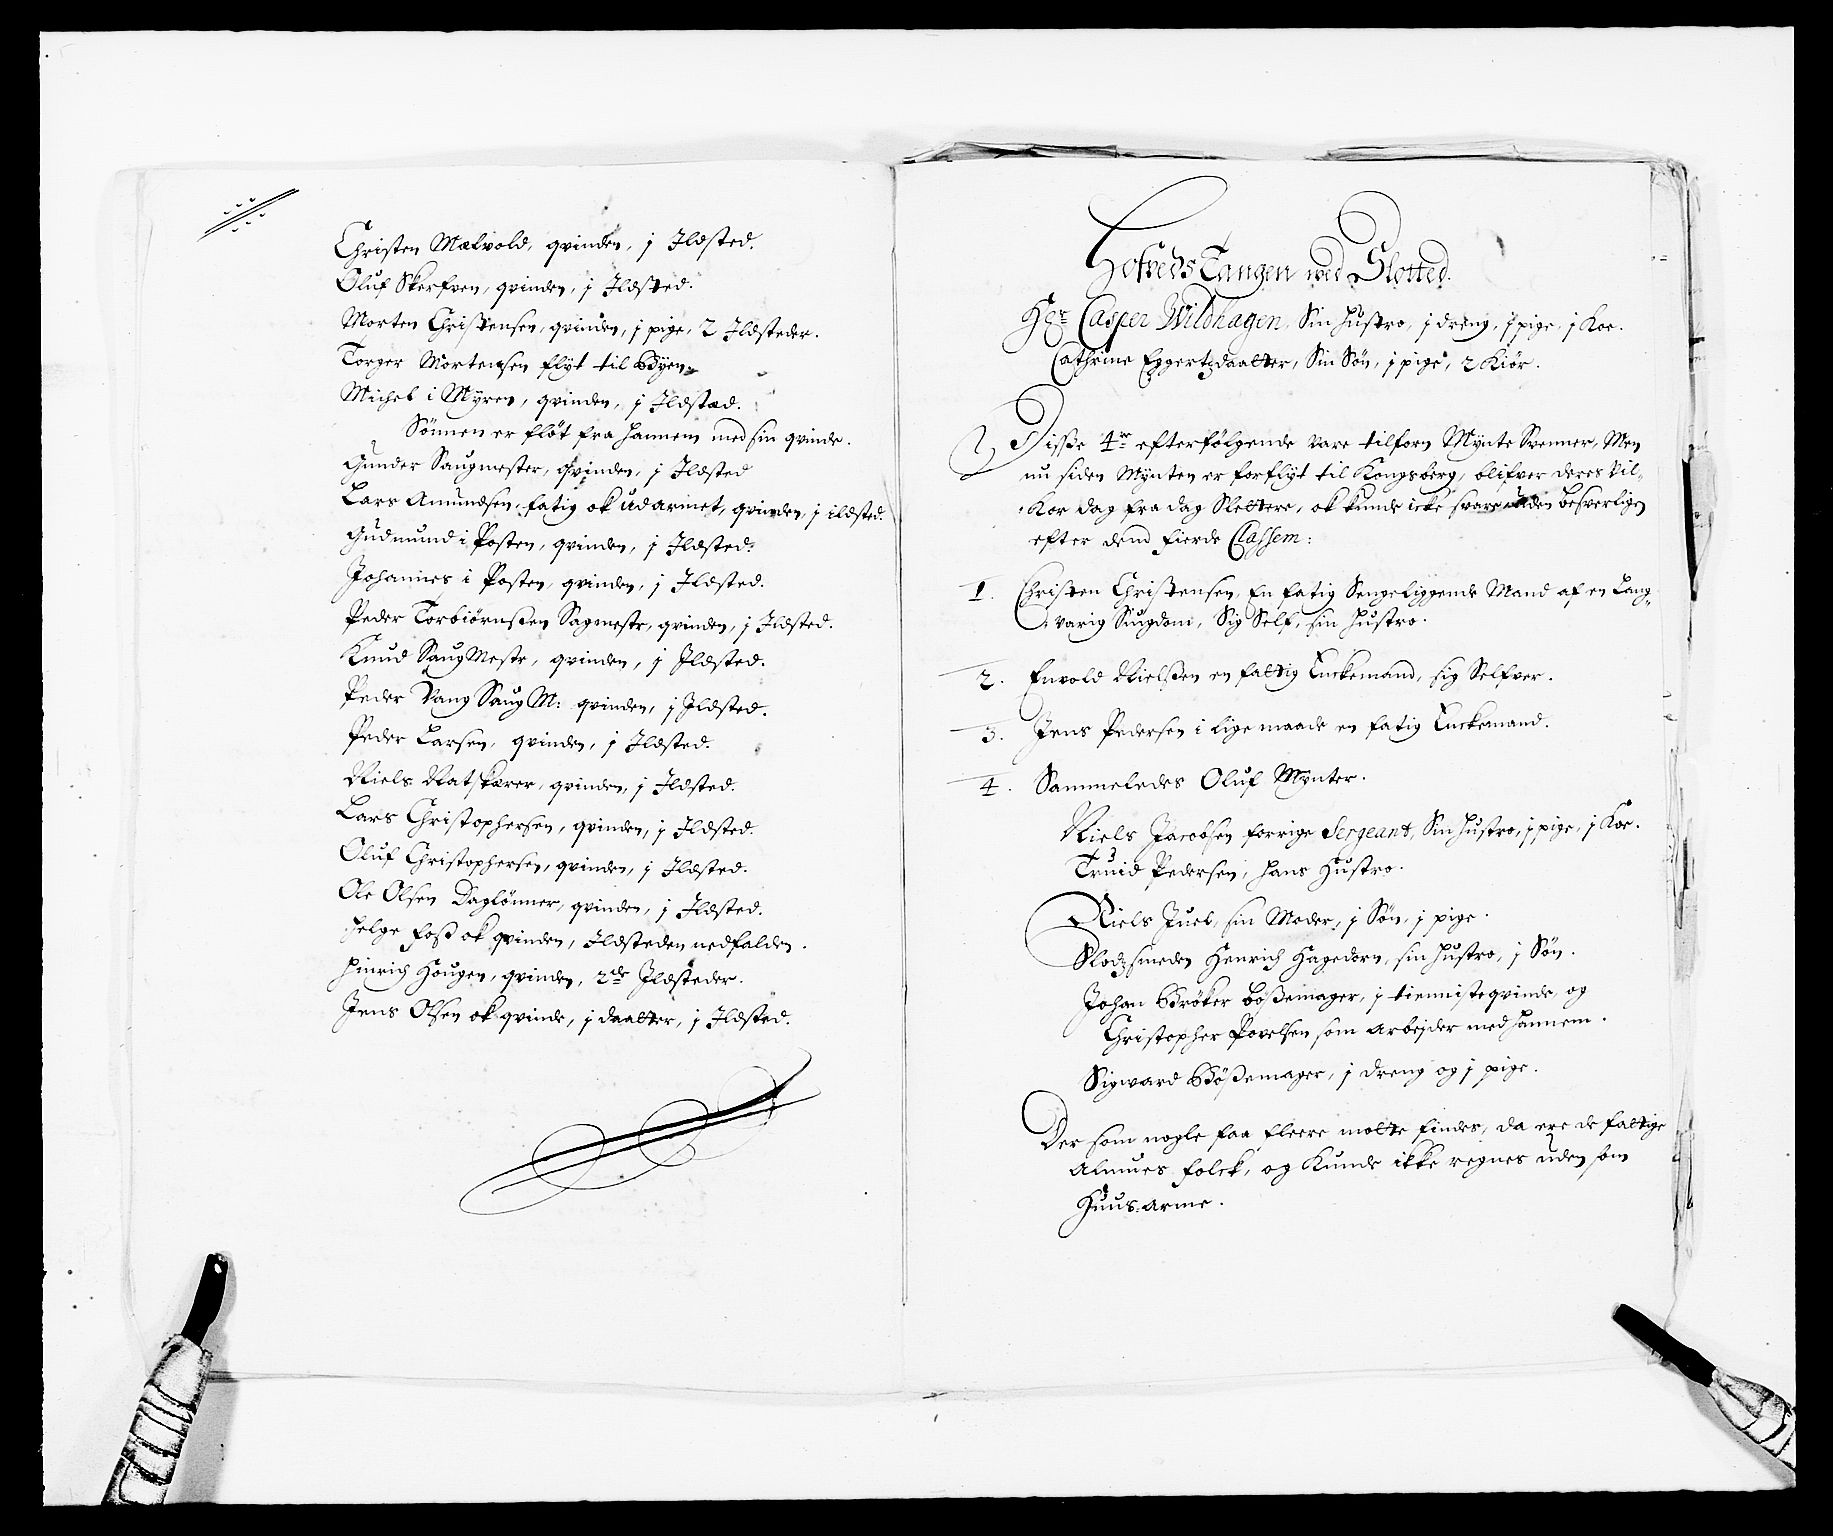 Christen Mælvold, qvinden, j Ildsted.
Oluf Skerfven, qvinden, j Ildsted.
Morten Christensen, qvinden, j pige, 2 Ildsteder.
Torger Mortensen flyt til Byen.
Michel i Myren, qvinden, j Ildstæd.
Sönnen er flöt fra hannem med sin qvinde.
Gunder Saugmester, qvinden, j Ildsted
Lars Amundsen, fatig ok udarmet, qvinden, j ildsted.
Gudmund i Posten, qvinden, j Ildsted.
Johannes i Posten, qvinden, j Ildsted.
Peder Torbiörnßen Sagmestr, qvinden, j Ildsted.
Knud SaugMestr, qvinden, j Ildsted.
Peder Vang Saug M: qvinden, j Ildsted.
Peder Larsen, qvinden, j Ildsted.
Niels Natskærer, qvinden, j Ildsted.
Lars Christophersen, qvinden, j Ildsted.
Oluf Christophersen, qvinden, j Ildsted.
Ole Olsen Daglönner, qvinden, j Ildsted.
Helge Foß ok qvinden, Ildsteden nedfalden.
Hinrich Hougen, qvinden, 2de Ildsteder.
Jens Olsen ok qvinde, j daatter, j Ildsted.
Hofveds Tangen ved Slotted.
Hr Casper Wildhagen, Sin Hustro, j dreng, j pige, j Koe.
Cathrine Eggertzdaatter, Sin Sön, j pige, 2 Kiör.
Disße 4re efterfölgende vare tilforn Mynte Svenner, Men
nu siden Mynten er forflyt til Kongsberg, blifver deres Vil-
Kor dag fra dag Slettere, ok kunde icke svare uden besverligen
efter dend fierde Classem:
1. Christen Christensen, En fatig Sengeliggende Mand af en Lang-
varig Siugdom, Sig Self, sin Hustro.
2. Envold Nielßen en fattig Enckemand, sig Selfver.
3. Jens Pedersen i lige maade en fatig Enckemand.
4. Sammeledes Oluf Mynter.
Niels Jacobsen forrige Sergeant, Sin Hustro, j pige, j Koe.
Truid Pedersen, hans Hustro.
Niels Juel, sin Moder, j Sön, j pige.
Slodzsmeden Henrich Hagedorn, sin Hustro, j Sön.
Johan Bröker bößemager, j tienniste qvinde, og
Christopher Povelsen som arbejder med hannem.
Sigvard Bößemager, j dreng og j pige.
Der som nogle faa fleere motte findes, da ere de fattige
Almues folck, og Kunde ikke regnes uden som
Huus-arme.